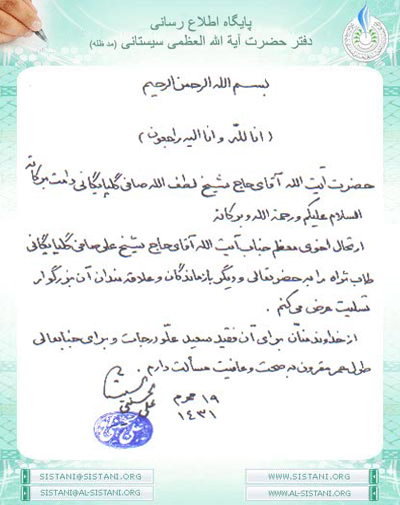 پایگاه اطلاع رسانی
دفتر حضرت آیة الله العظمی سیستانی (مد ظله)
بسم الله الرحمن الرحیم
(انا للّه و انا الیه راجعون)
حضرت آیت الله آقای حاج شیخ لطف الله صافی گلپایگانی دامت برکاته
السلام علیکم ورحمة الله وبرکاته
ارتحال اخوی معظم جناب آیت الله آقای حاج شیخ علی صافی گلپایگانی
طاب ثراه را به حضرتعالی و دیگر بازماندگان و علاقه مندان آن بزرگوار
تسلیت عرض می کنم.
از خداوند منّان برای آن فقید سعید علوّ درجات و برای جنابعالی
طول عمر مقرون به صحت و عافیت مسألت دارم.
۱۹ محرم
۱۴۳۱
علی الحسینی
السیستانی
SISTANI@SISTANI.ORG
WWW.SISTANI.ORG
SISTANI@AL-SISTANI.ORG
WWW.AL-SISTANI.ORG